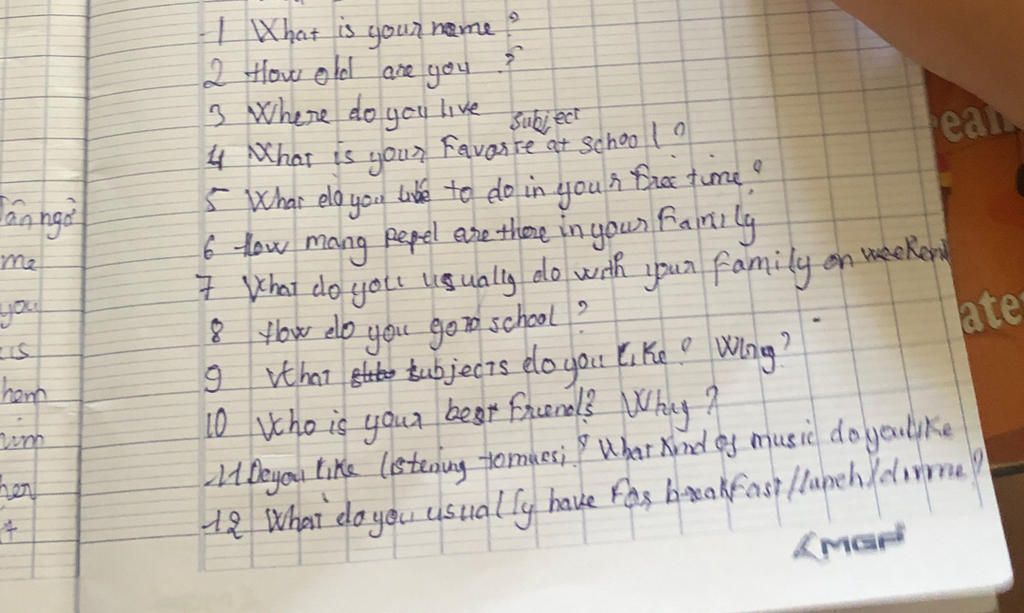 Tân ngữ
me
you
us
hem
him
her
it
1 What is your name?
2 How old are you?
3 Where do you live
subject
4 What is your Favorite at school?
5 What do you like to do in your free time?
6 How many pepel are there in your Family
7 What do you usually do with your family on weekend
8 How do you go to school?
9 What subjects do you like? Why?
10 Who is your best friend? Why?
11 Do you like listening to muesi? What kind of music do you like
12 What do you usually have for breakfast/lunch/dinrme?
MGH
ream
ate